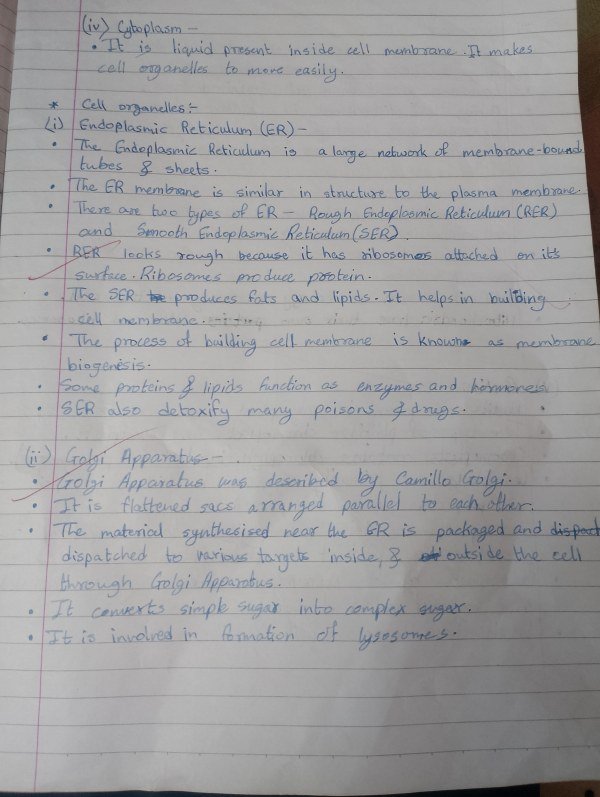 (iv) Cytoplasm -
• It is liquid present inside cell membrane. It makes
cell organelles to move easily.
* Cell organelles:-
(i) Endoplasmic Reticulum (ER) -
• The Endoplasmic Reticulum is a large network of membrane-bound
tubes & sheets.
• The ER membrane is similar in structure to the plasma membrane.
• There are two types of ER - Rough Endoplasmic Reticulum (RER)
and Smooth Endoplasmic Reticulum (SER).
• RER looks rough because it has ribosomes attached on its
surface. Ribosomes produce protein.
• The SER produces fats and lipids. It helps in building
cell membrane.
• The process of building cell membrane is known as membrane
biogenesis.
• Some proteins & lipids function as enzymes and hormones
• SER also detoxify many poisons & drugs.
(ii) Golgi Apparatus -
• Golgi Apparatus was described by Camillo Golgi.
• It is flattened sacs arranged parallel to each other.
• The material synthesised near the ER is packaged and dispact
dispatched to various targets inside, & outside the cell
through Golgi Apparatus.
• It converts simple sugar into complex sugar.
• It is involved in formation of lysosomes.